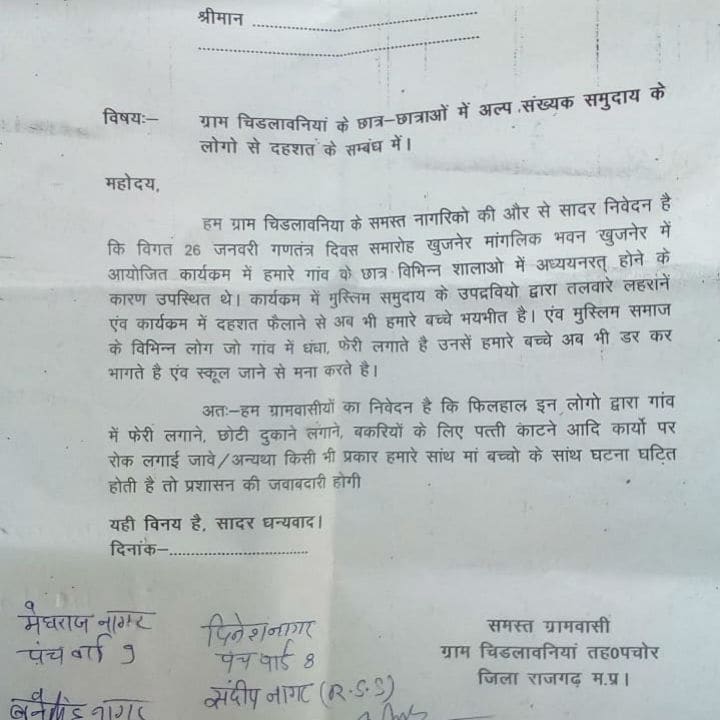 श्रीमान ..............................................
..........................................................
विषयः– ग्राम चिडलावनियां के छात्र–छात्राओं में अल्प संख्यक समुदाय के
लोगो से दहशत के सम्बंध में।
महोदय,
हम ग्राम चिडलावनिया के समस्त नागरिको की और से सादर निवेदन है
कि विगत 26 जनवरी गणतंत्र दिवस समारोह खुजनेर मांगलिक भवन खुजनेर में
आयोजित कार्यक्रम में हमारे गांव के छात्र विभिन्न शालाओ में अध्ययनरत् होने के
कारण उपस्थित थे। कार्यक्रम में मुस्लिम समुदाय के उपद्रवियो द्वारा तलवारे लहरानें
एंव कार्यक्रम में दहशत फैलाने से अब भी हमारे बच्चे भयभीत है। एंव मुस्लिम समाज
के विभिन्न लोग जो गांव में धंधा, फेरी लगाते है उनसें हमारे बच्चे अब भी डर कर
भागते है एंव स्कूल जाने से मना करते है।
अतः–हम ग्रामवासीयों का निवेदन है कि फिलहाल इन लोगो द्वारा गांव
में फेरी लगाने, छोटी दुकाने लगाने, बकरियों के लिए पत्ती काटने आदि कार्यो पर
रोक लगाई जावे/अन्यथा किसी भी प्रकार हमारे सांथ मां बच्चो के सांथ घटना घटित
होती है तो प्रशासन की जवाबदारी होगी
यही विनय है, सादर धन्यवाद।
दिनांक–...............................
मेघराज नागर
पंच वार्ड 9
दिनेश नागर
पंच वार्ड 8
संदीप नागर (R.S.S)
नागर
समस्त ग्रामवासी
ग्राम चिडलावनियां तह0पचोर
जिला राजगढ़ म.प्र।